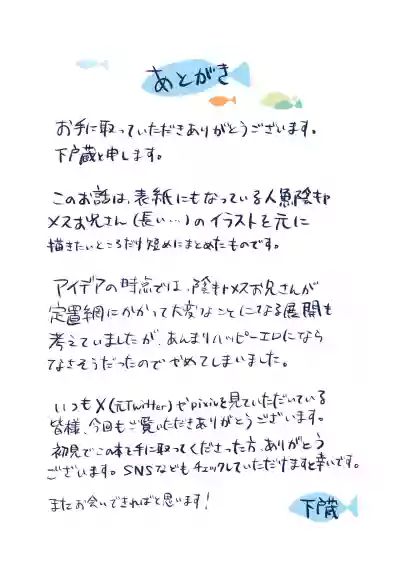 あとがき
お手に取っていただきありがとうございます。
下戸蔵と申します。
このお話は、表紙にもなっている人魚陰キャ
メスお兄さん(長い…)のイラストを元に
描きたいところだけ短めにまとめたものです。
アイデアの時点では、陰キャメスお兄さんが
定置網にかかって大変なことになる展開も
考えていましたが、あんまりハッピーエロになら
なさそうだったのでやめてしまいました。
いつもX(元Twitter)やpixivを見ていただいている
皆様、今回もご覧いただきありがとうございます。
初見でこの本を手に取ってくださった方、ありがとう
ございます。SNSなどもチェックしていただけますと幸いです。
またお会いできればと思います!
下戸蔵